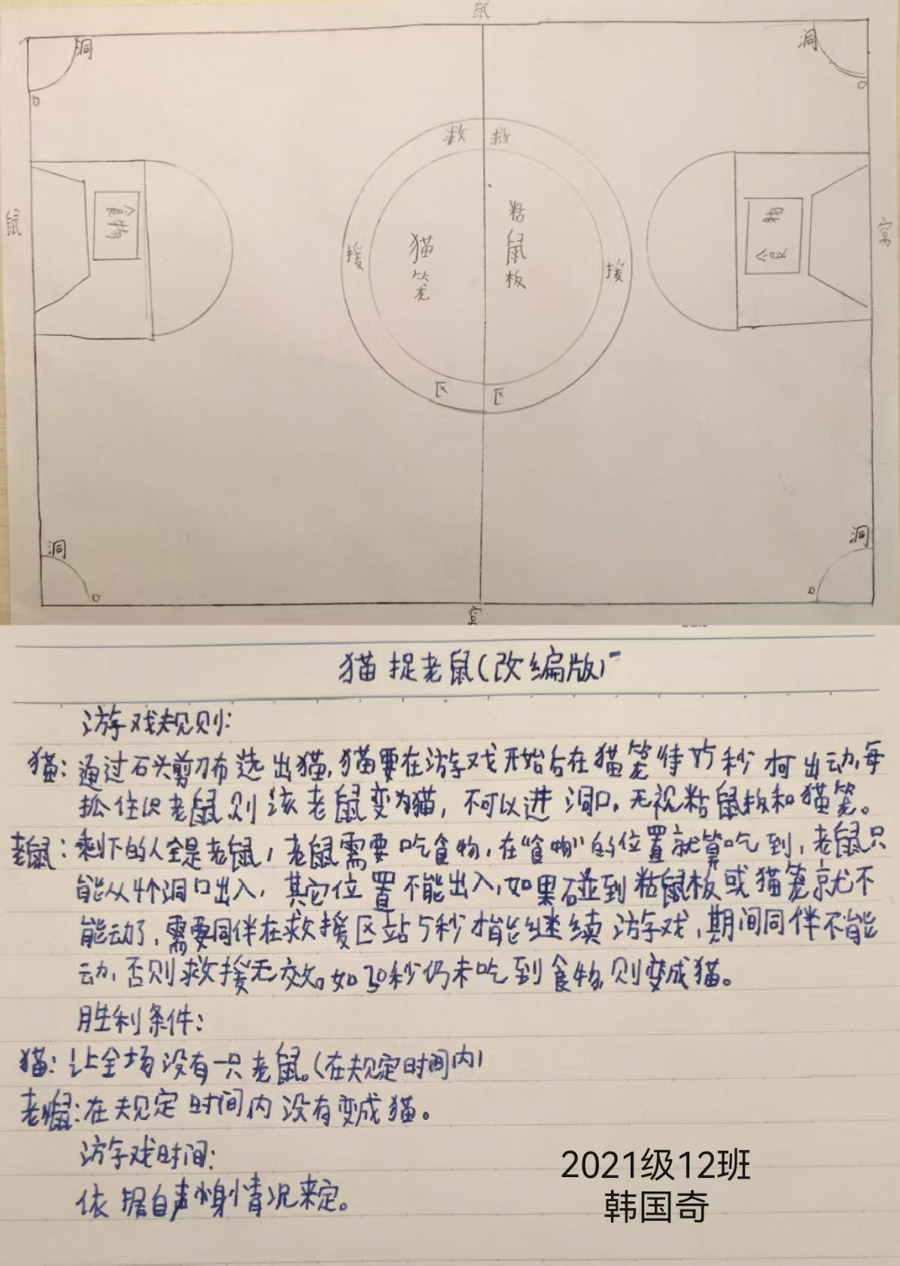 鼠
洞
洞
救 救
鼠
食物
猫笼
粘鼠板
援
援
食物
窝
区 区
洞
洞
窝
猫捉老鼠(改编版)
游戏规则:
猫:通过石头剪刀布选出猫,猫要在游戏开始后在猫笼待15秒才可出动,每
抓住只老鼠则该老鼠变为猫,不可以进洞口,无视粘鼠板和猫笼。
老鼠:剩下的人全是老鼠,老鼠需要吃食物,在“食物”的位置就算吃到,老鼠只
能从4个洞口出入,其它位置不能出入,如果碰到粘鼠板或猫笼就不
能动了,需要同伴在救援区站5秒才能继续游戏,期间同伴不能
动,否则救援无效。如30秒仍未吃到食物,则变成猫。
胜利条件:
猫:让全场没有一只老鼠。(在规定时间内)
老鼠:在规定时间内没有变成猫。
游戏时间:
依据自身情况来定。
2021级12班
韩国奇